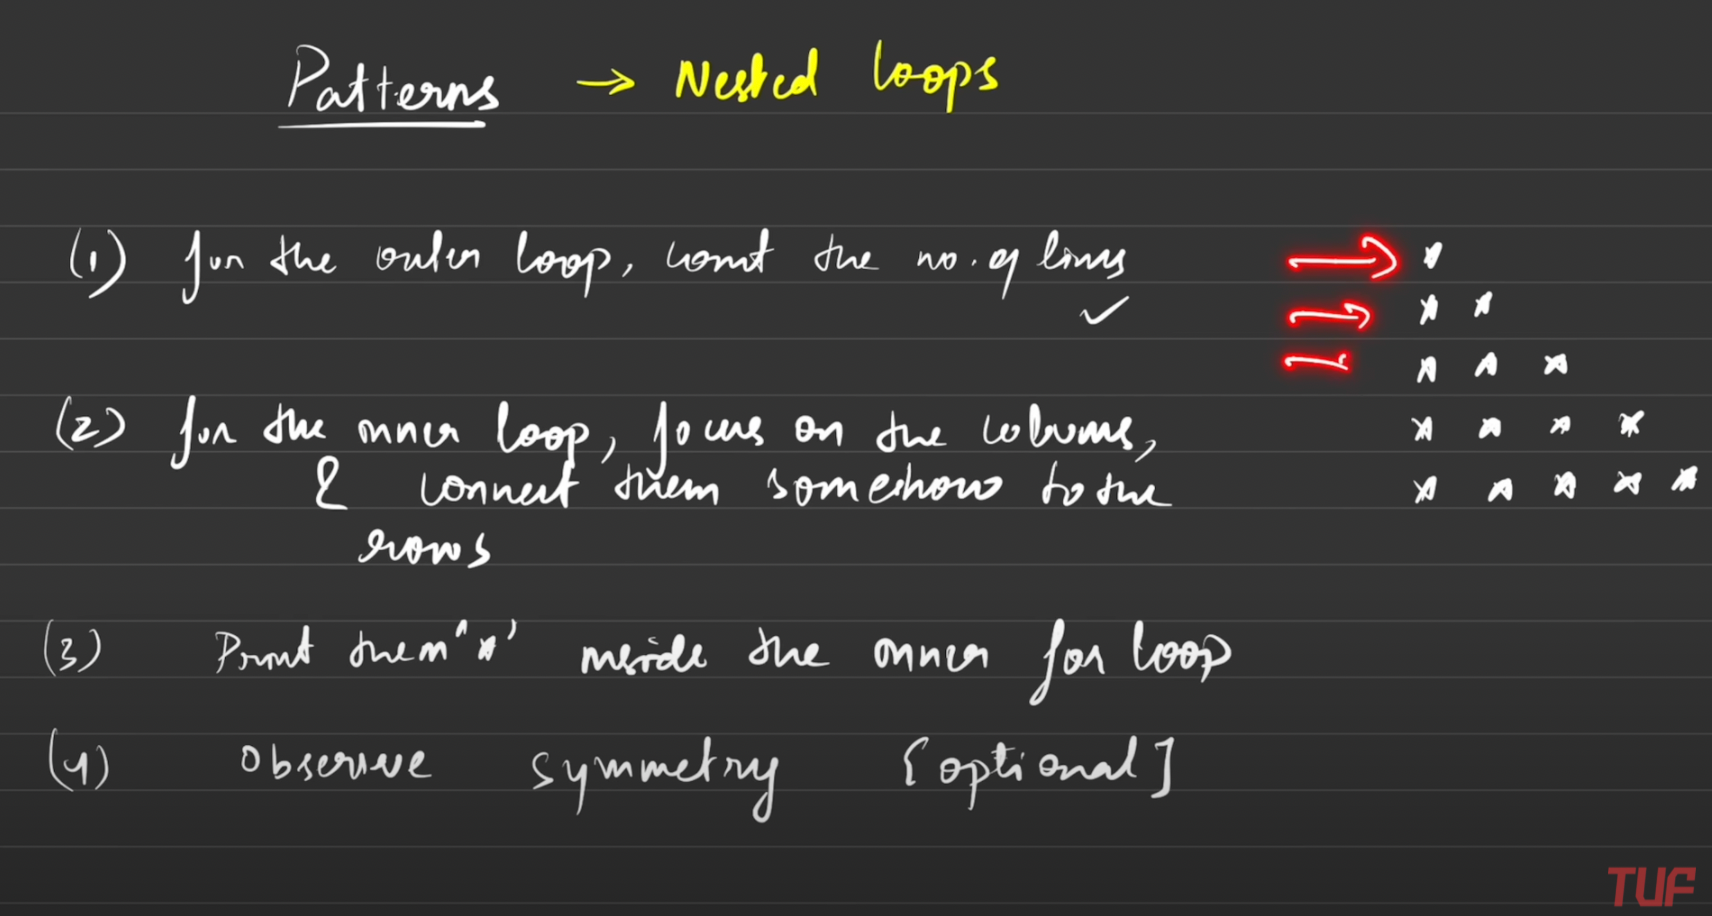 Patterns → Nested loops
(1) for the outer loop, count the no. of lines
*
* *
* * *
(2) for the inner loop, focus on the columns,
* * * *
& connect them somehow to the
* * * * *
rows
(3) Print them '*' inside the inner for loop
(4) Observe symmetry [optional]
TUF